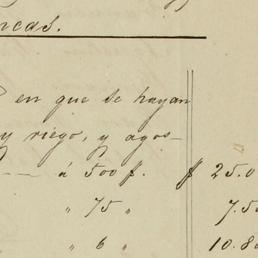 ncas.
en que se hayan
y riego, y agos-
á 500 f. $ 25.0
" 75 " 7.5
" 6 " 10.8